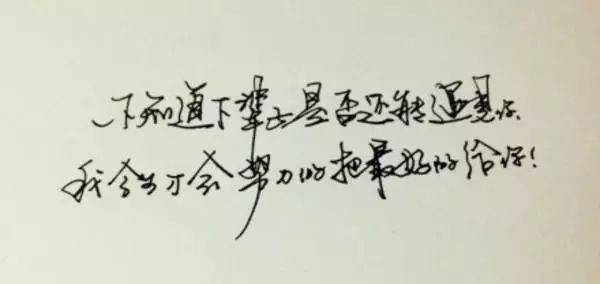 不知道下辈子是否还能遇见你
我今生才会努力的把最好的给你!